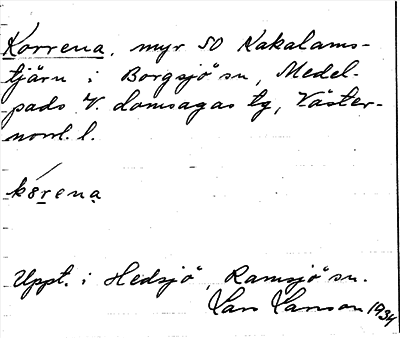 Korrena, myr SO Kakalams-
tjärn i Borgsjö sn, Medel-
pads V. domsagas tg, Väster-
norrl. l.
kȣrena
Uppt. i Hedsjö, Ramsjö sn.
Lars Larsson 1934